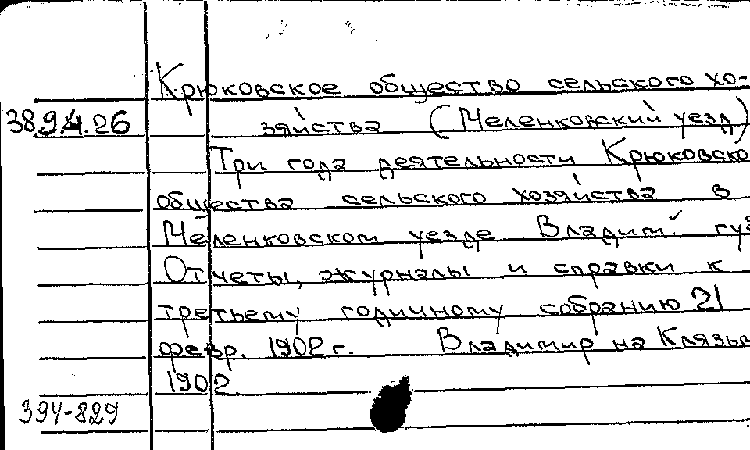 Крюковское общество сельского хо-
389Д.26 зяйства (Меленковский уезд)
Три года деятельности Крюковско
общества сельского хозяйства в
Меленковском уезде Владим. гу
Отчеты, журналы и справки к
третьему годичному собранию 21
февр. 1902 г. Владимир на Клязь
1902
394-829